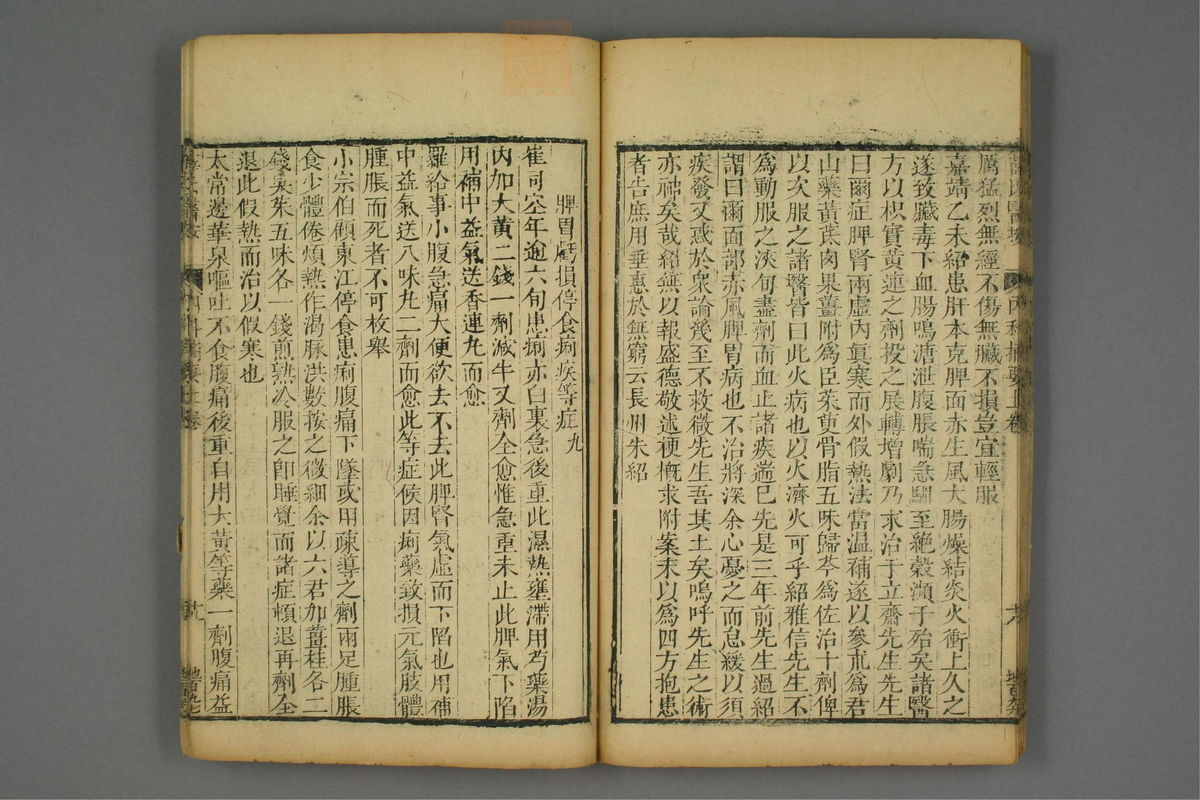 厲猛烈無經不傷無臟不損豈宜輕服
嘉靖乙未紹患肝木克脾面赤生風大腸燥結炎火衝上久之
遂致臟毒下血腸鳴溏泄腹脹喘急馴至絶穀瀕于殆矣諸醫
方以枳實黃連之劑投之展轉增劇乃求治于立齋先生先生
曰爾症脾腎兩虛内眞寒而外假熱法當温補遂以參朮為君
山藥黃芪肉果薑附爲臣茱萸骨脂五味歸芩爲佐治十劑俾
以次服之諸醫皆曰此火病也以火濟火可乎紹雅信先生不
為動服之浹旬盡劑而血止諸疾遄巳先是三年前先生過紹
謂曰爾面部赤風脾胃病也不治將深余心憂之而怠緩以須
疾發又惑於衆論幾至不救微先生吾其土矣嗚呼先生之術
亦神矣哉紹無以報盛德敬述梗概求附案末以爲四方抱患
者告庶用垂惠於無窮云長州朱紹
内科摘要上卷
脾胃虧損停食痢疾等症九
崔司空年逾六旬患痢赤白裏急後重此濕熱壅滯用芍藥湯
内加大黃二錢一劑減半又劑全愈惟急重未止此脾氣下陷
用補中益氣送香連丸而愈
羅給事小腹急痛大便欲去不去此脾腎氣虛而下陷也用補
中益氣送八味丸二劑而愈此等症候因痢藥致損元氣肢體
腫脹而死者不可枚舉
小宗伯顧東江停食患痢腹痛下墜或用疎導之劑兩足腫脹
食少體倦煩熱作渴脉洪數按之微細余以六君加薑桂各二
錢吴茱五味各一錢煎熟冷服之卽睡覺而諸症頓退再劑全
退此假熱而治以假寒也
太常邊華泉嘔吐不食腹痛後重自用大黃等藥一劑腹痛益